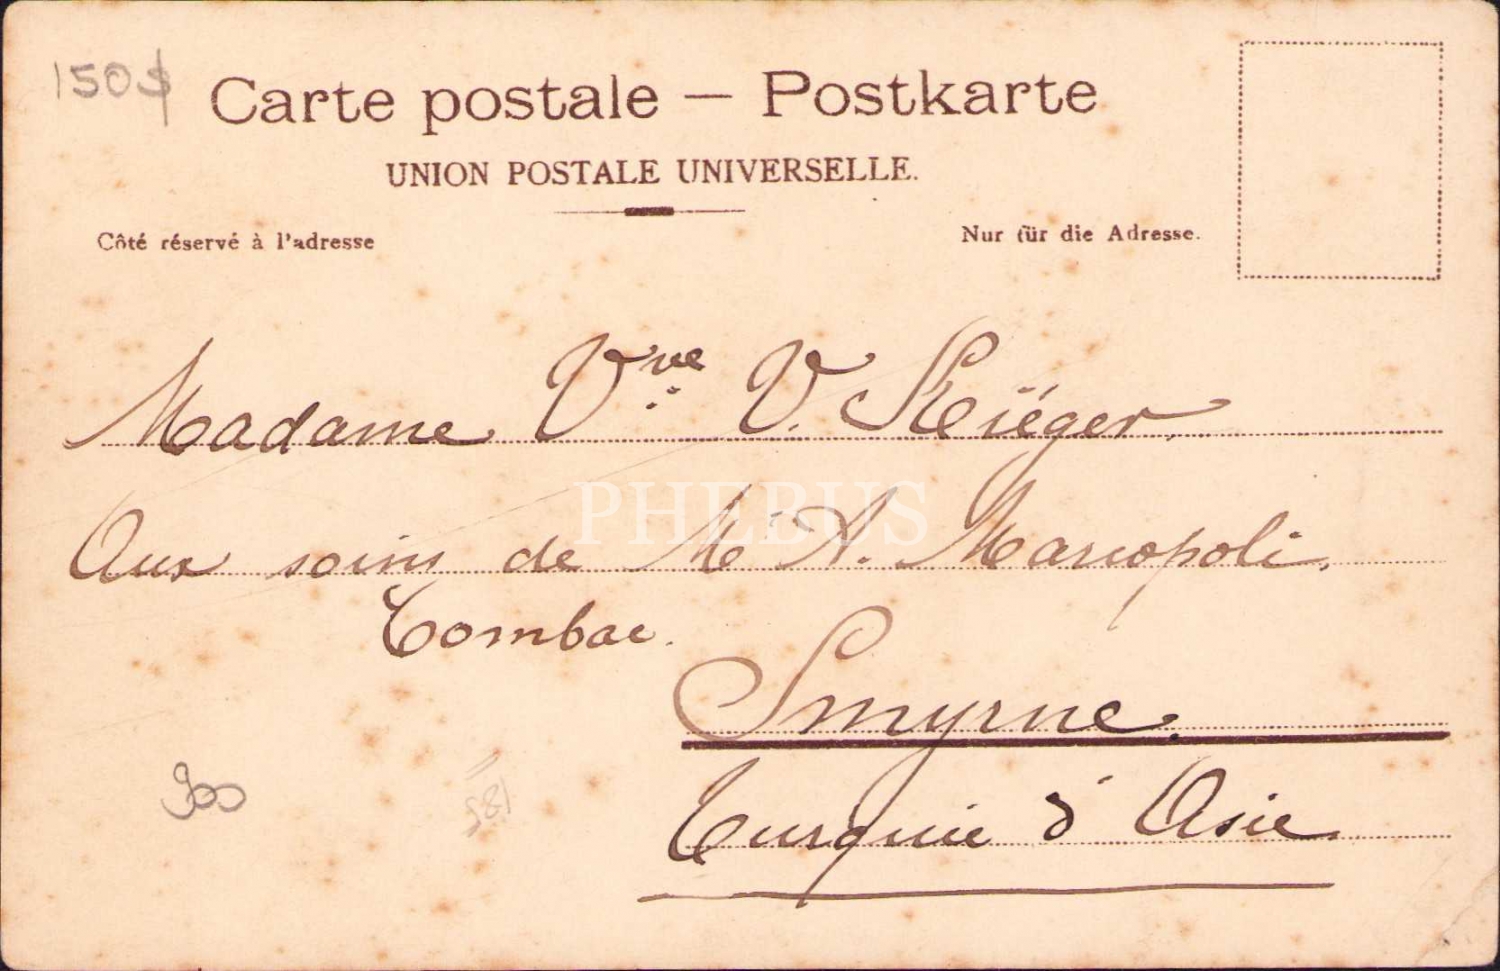 150$
Carte postale — Postkarte
UNION POSTALE UNIVERSELLE.
Côté réservé à l'adresse
Nur für die Adresse.
Madame Vve V. Kriéger.
Aux soins de Mr A. Marcopoli.
Tombac.
PHEBUS
Smyrne.
Turquie d'Asie.
900